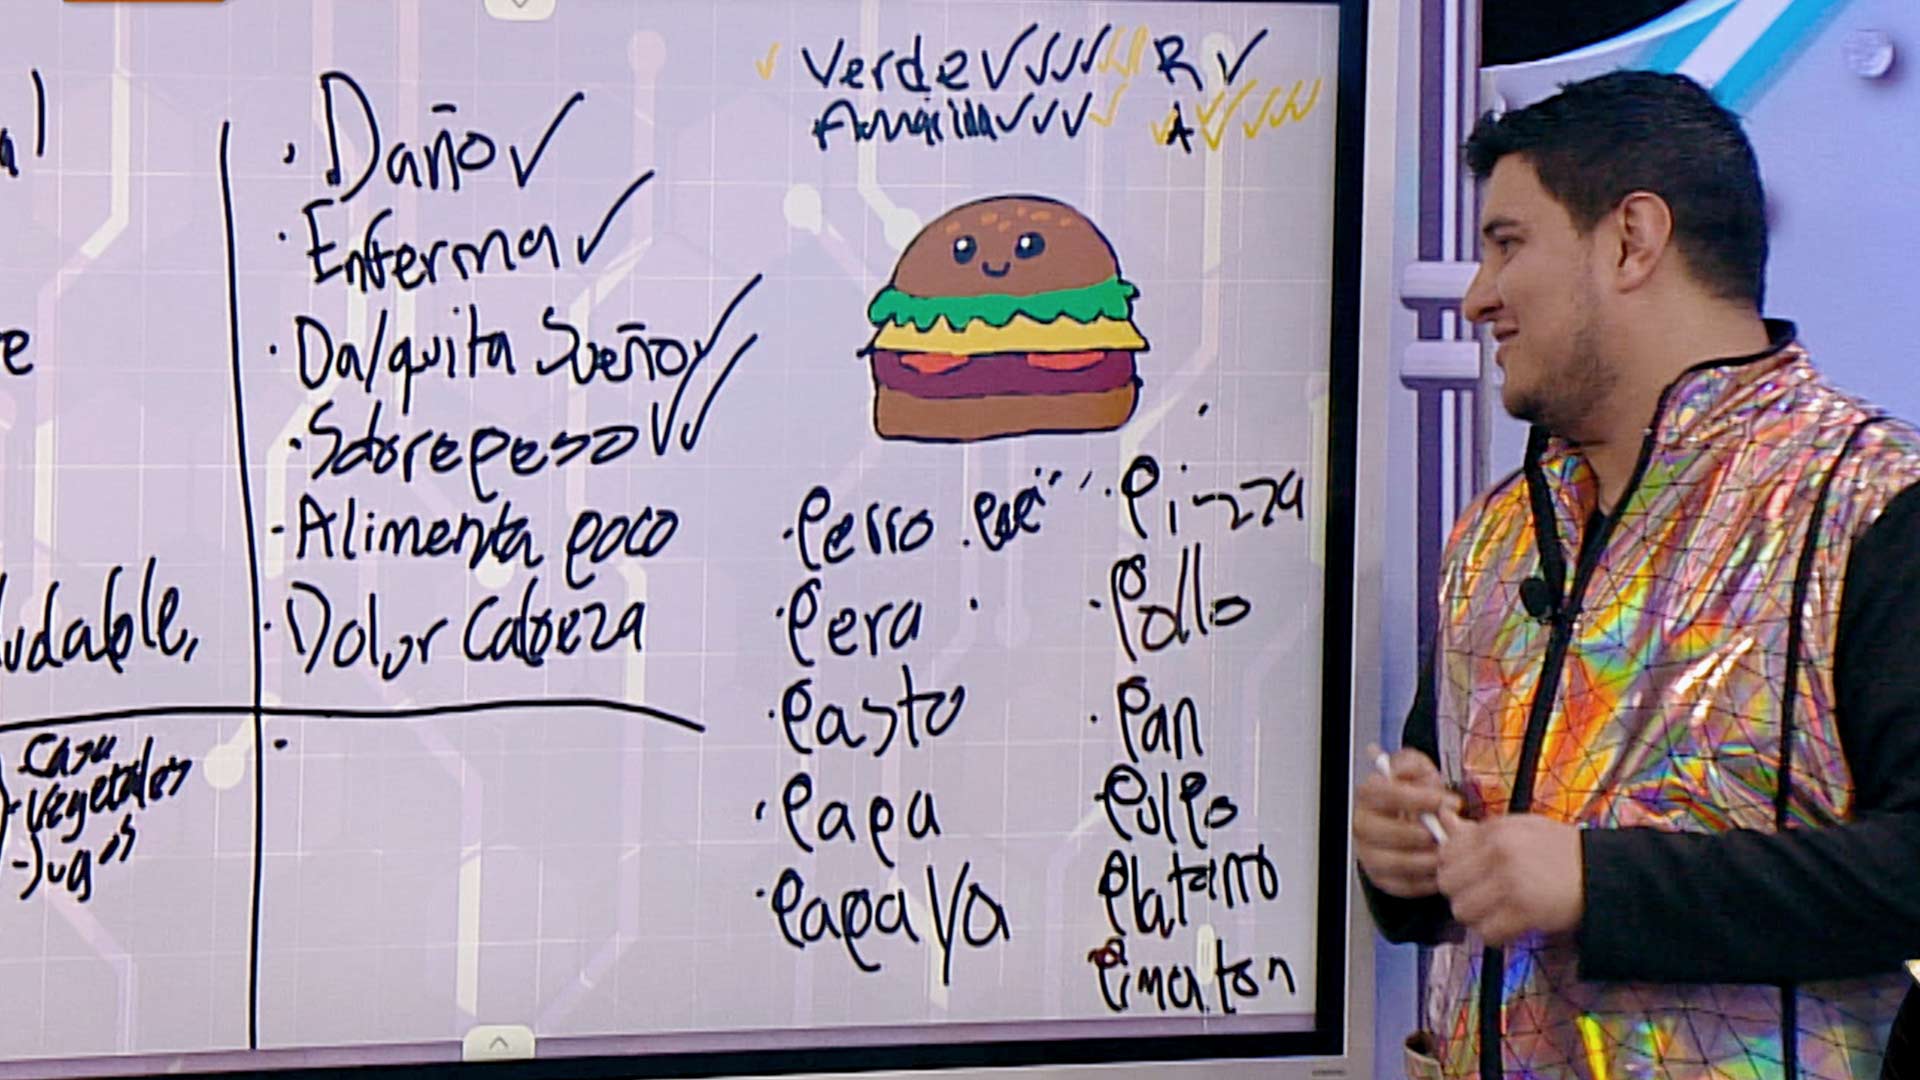 Verde R
Amarilla A
Daño
Enferma
Da/quita Sueño
Sobrepeso
Alimenta poco
Dolor Cabeza
udable,
Casa
-Vegetales
-Jugos
Perro
Pera
Pasto
Papa
Papaya
Pizza
Pollo
Pan
Pulpo
Platano